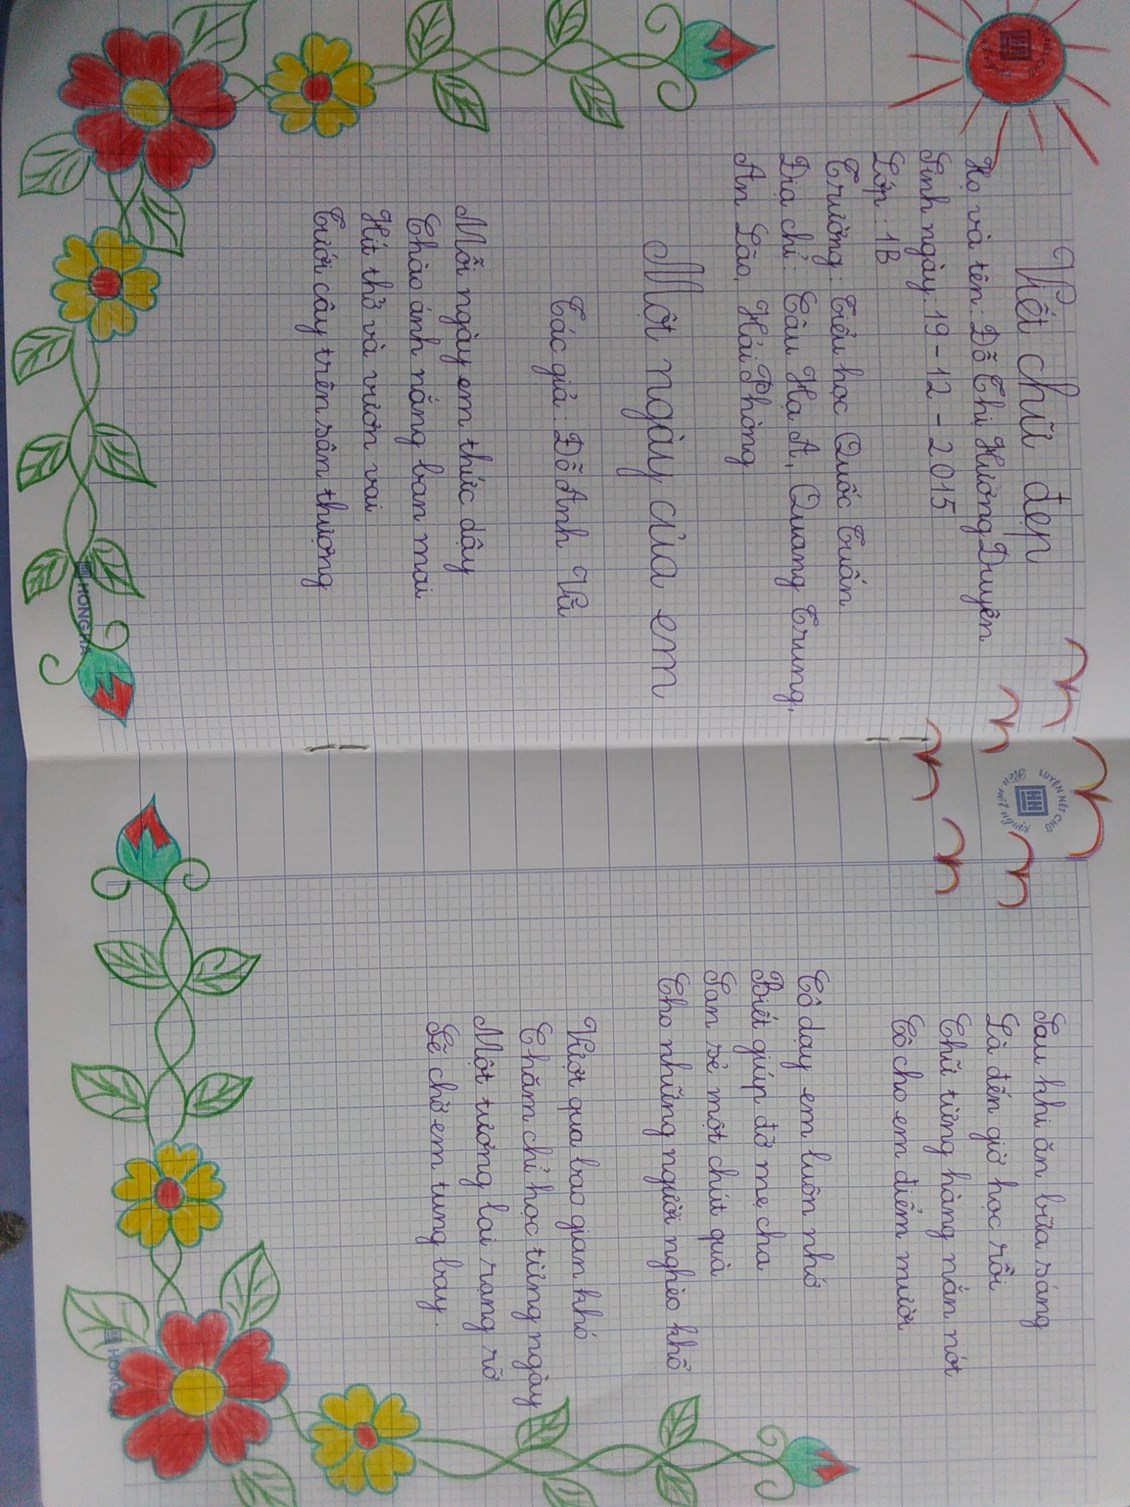 Viết chữ đẹp
Họ và tên: Đỗ Thị Hương Duyên
Sinh ngày: 19 - 12 - 2015
Lớp: 1B
Trường: Tiểu học Quốc Tuấn
Địa chỉ: Câu Hạ A, Quang Trung,
An Lão, Hải Phòng
Một ngày của em
Tác giả: Đỗ Anh Vũ
Mỗi ngày em thức dậy
Chào ánh nắng ban mai
Hít thở và vươn vai
Tưới cây trên sân thượng
HONG HA
Sau khi ăn bữa sáng
Là đến giờ học rồi
Chữ từng hàng nắn nót
Cô cho em điểm mười
Cô dạy em luôn nhớ
Biết giúp đỡ mẹ cha
San sẻ một chút quà
Cho những người nghèo khổ
Vượt qua bao gian khó
Chăm chỉ học từng ngày
Một tương lai rạng rỡ
Sẽ chờ em tung bay.
LUYỆN NÉT CHỮ
Rèn nết người
HH
HONG